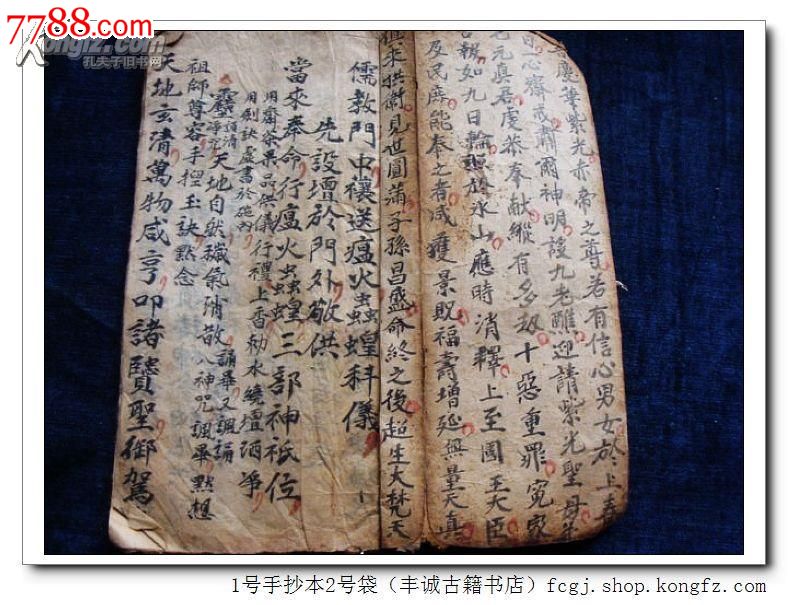 7788.com
Kongfz.com
孔夫子旧书网
慶華紫光赤帝之尊若有信心男女於上春
日心齋戒肅爾神明設九老醮迎請紫光聖母并
元真君虔恭奉献縱有多劫十惡重罪冤家
報如九日輪照於氷山應時消釋上至國王大臣
及民庶能奉之者咸獲景貺福壽增延無量天真
來拱衛見世圓滿子孫昌盛命終之後超生大梵天
儒教門中禳送瘟火蟲蝗科儀
先設壇於門外敬供
當來奉命行瘟火蟲蝗三部神祇位
用齋茶果品供儀行禮上香勅水繞壇洒爭
用劍訣虛書於碗內
靈 天地自然穢氣消散 誦畢又諷誦
八神咒諷畢點想
祖師尊容手揑玉訣點念
天地玄清萬物咸亨叩諸賢聖御駕
1号手抄本2号袋（丰诚古籍书店）fcgj.shop.kongfz.com